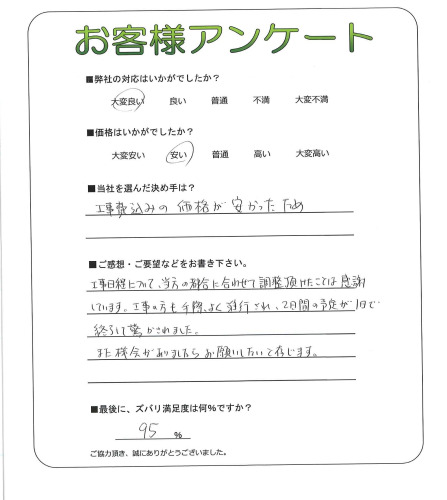 お客様アンケート
■弊社の対応はいかがでしたか?
大変良い 良い 普通 不満 大変不満
■価格はいかがでしたか?
大変安い 安い 普通 高い 大変高い
■当社を選んだ決め手は?
工事費込みの価格が安かったため
■ご感想・ご要望などをお書き下さい。
工事日程について、当方の都合に合わせて調整頂けたことは感謝
しています。工事の方も手際よく進行され、2日間の予定が1日で
終了して驚かされました。
また機会がありましたらお願いしたいて存じます。
■最後に、ズバリ満足度は何%ですか?
95 %
ご協力頂き、誠にありがとうございました。